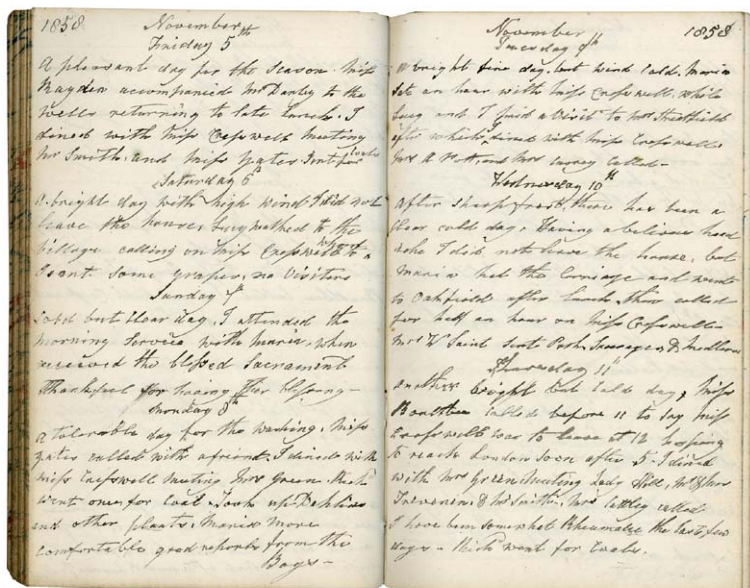 1858. November
Friday 5th
A pleasant day for the season. Miss
Hayden accompanied Mr Danby to the
Wells returning to late lunch. I
dined with Miss Cresswell meeting
Mr Smith, and Miss Yates. Sent for Coals
Saturday 6th
A bright day with high wind I did not
leave the house, Lucy walked to the
Village calling on Miss Cresswell to
I sent some grapes, no Visitors
Sunday 7th
Cold but clear day, I attended the
morning Service with Maria, when
received the blessed Sacrament
Thankful for having this blessing –
Monday 8th
A tolerable day for the washing, Miss
Yates called with a friend. I dined with
Miss Cresswell meeting Mrs Green. Rich
went once for Coal. Took up Dahlias
and other plants. Maria more
comfortable good reports from the
Boys –
November 1858
Tuesday 9th
A bright fine day, but wind cold. Maria
sat an hour with Miss Cresswell, while
Lucy and I paid a visit to Mrs Streatfield
after which dined with Miss Cresswell
Mrs A Pott, and Mrs called –
Wednesday 10th
After sharp frost, there has been a
clear cold day. Having a bilious head
ache I did not leave the house, but
Maria had the Carriage and went
to Oakfield after lunch, then called
for half an hour on Miss Cresswell –
Mrs W Saint sent Pork, Sausages, &
Thursday 11th
Another bright but cold day, Miss
called before 11 to say Miss
Cresswell was to leave at 12 hoping
to reach London soon after 5 – I dined
with Mrs Green meeting Lady Hill, Mr & Mrs
& Mr Smith. Mrs called
I have been somewhat Rheumatic the last few
days – Rich went for Coals.